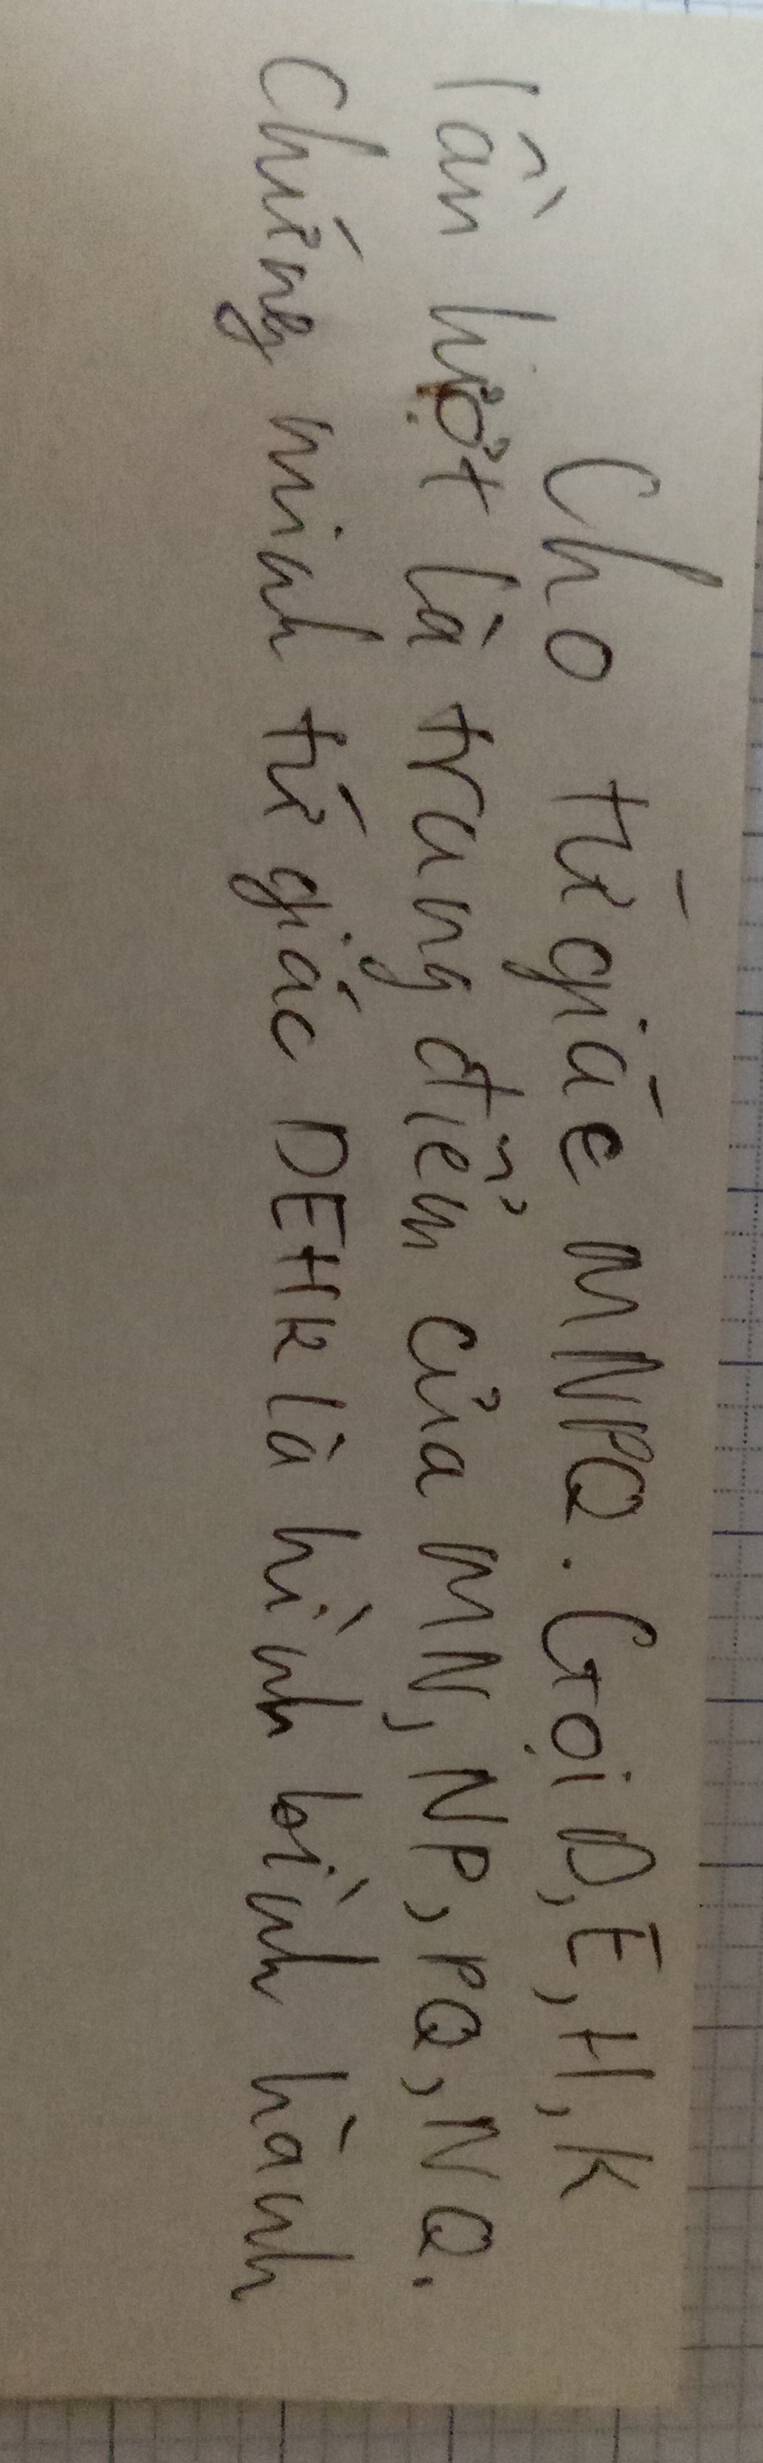 Cho tứ giác MNPQ. Gọi D, E, H, K
lần lượt là trung điểm của MN, NP, PQ, NQ.
Chứng minh tứ giác DEHK là hình bình hành